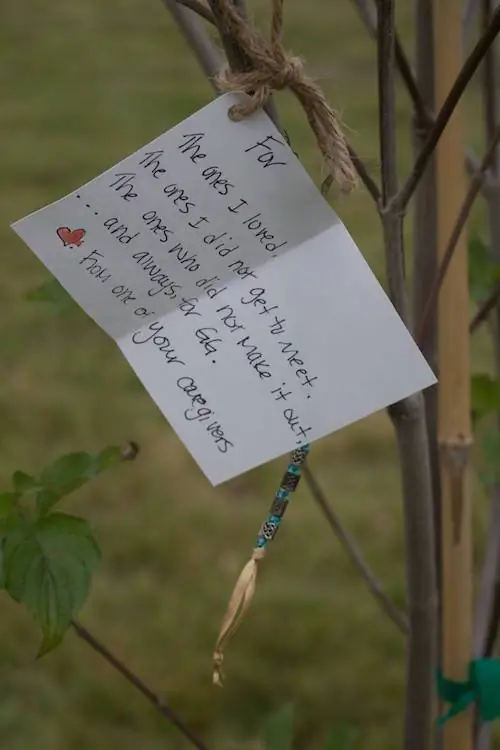 For
The ones I loved,
The ones I did not get to meet.
The ones who did not make it out,
... and always, for GG.
From one of your caregivers